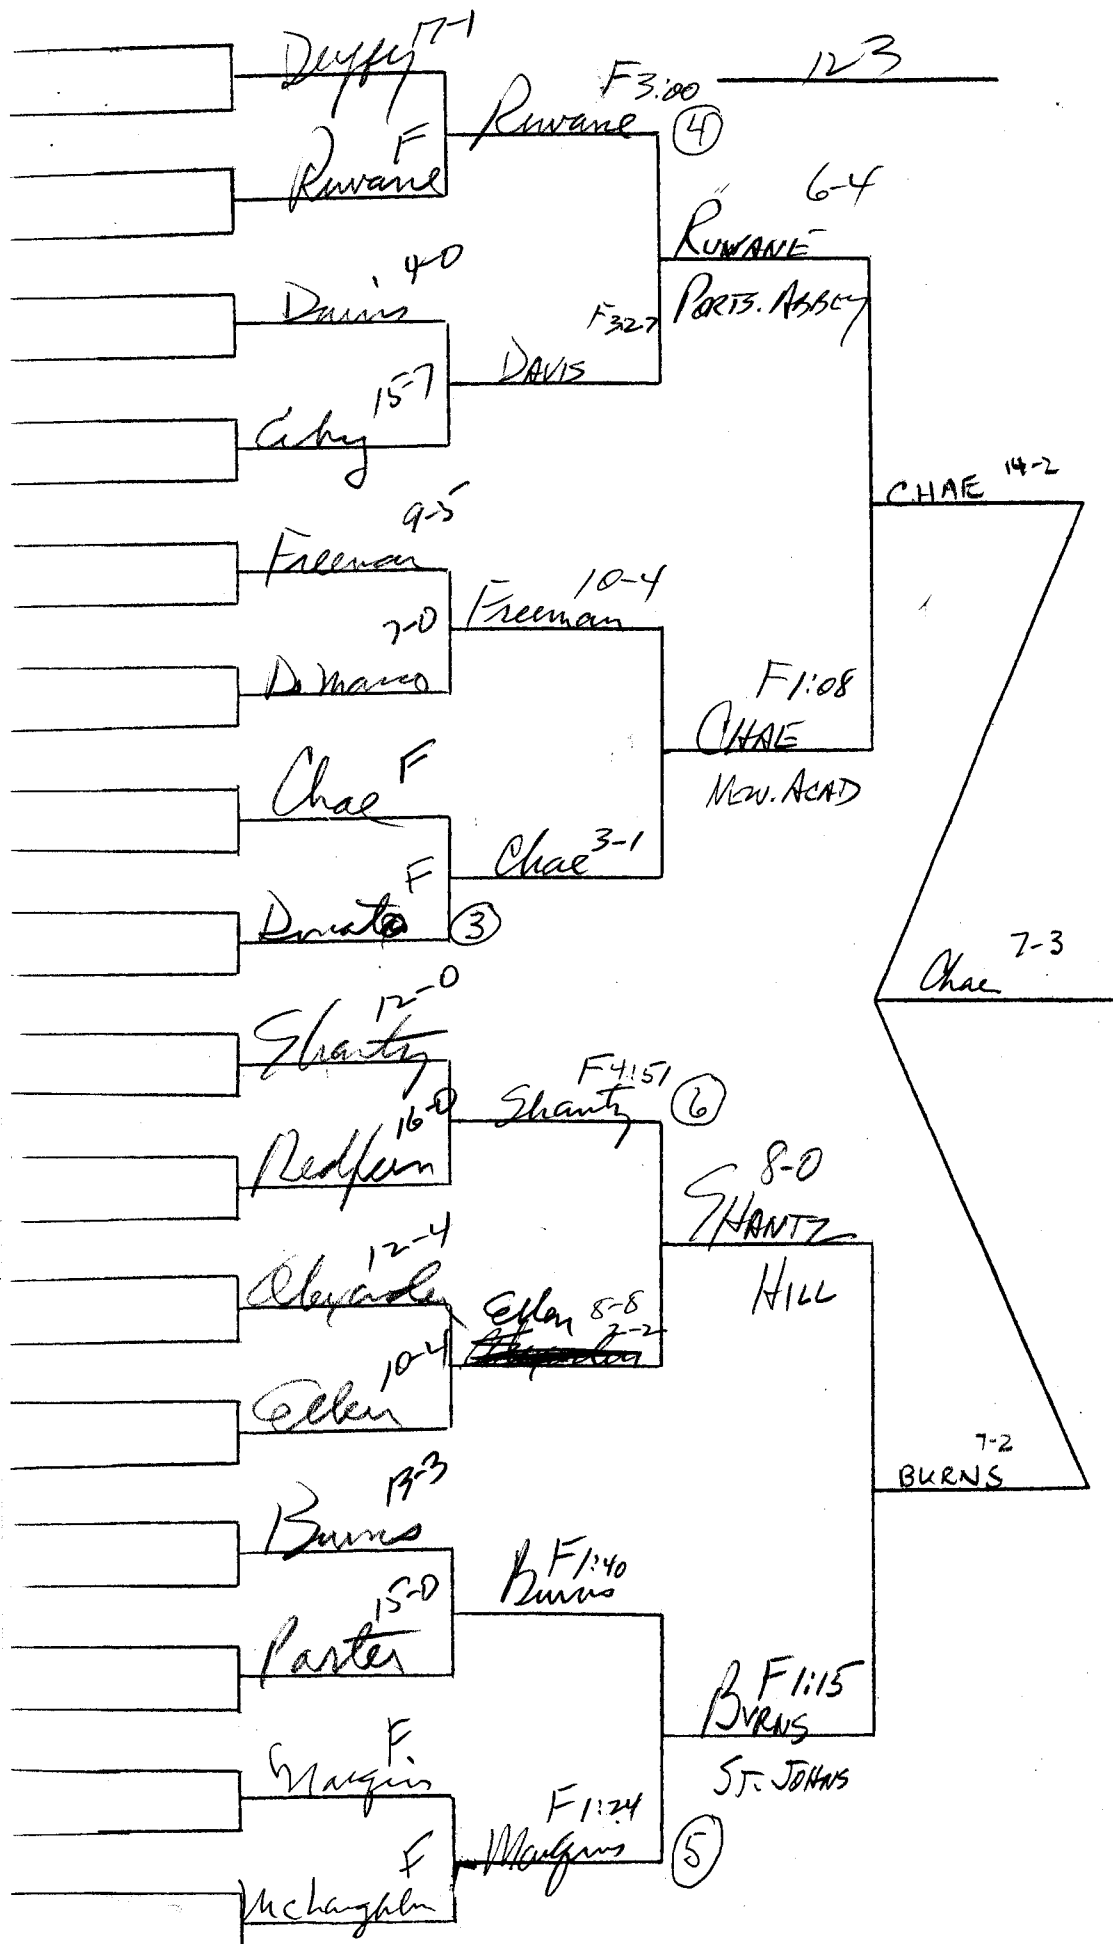 123
Duffy 17-1
Ruvane F
Davis 4-0
15-7
Freeman 9-5
DeMarco 7-0
Chae F
Donato F
③
Shantz 12-0
Redfern 16-0
Alexander 12-4
Eller 10-4
Burns 13-3
Porter 15-0
F
McLaughlin F
Ruvane F3:00
④
DAVIS
F3:27
Freeman 10-4
Chae 3-1
Shantz F4:51
⑥
Eller 8-8
2-2
Burns F1:40
F1:24
⑤
RUVANE 6-4
PORTS. ABBEY
CHAE F1:08
NEW. ACAD
SHANTZ 8-0
HILL
BURNS F1:15
ST. JOHNS
CHAE 14-2
BURNS 7-2
Chae 7-3